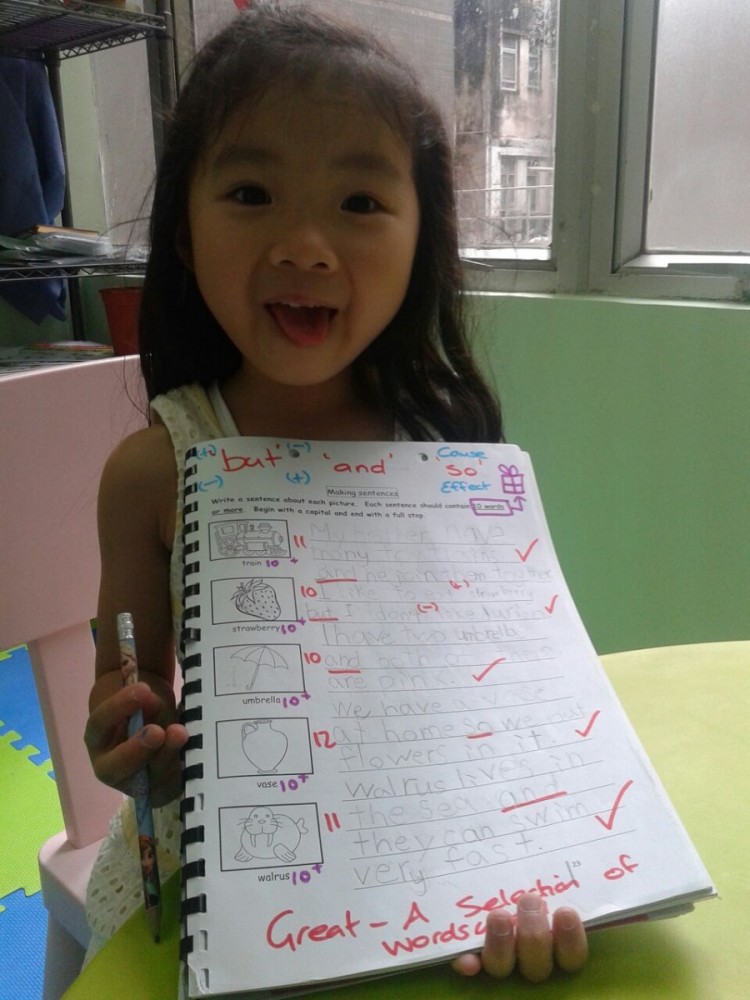 (+) (-) Cause
'but' 'and' 'so'
(-) (+) Effect
Making sentences
Write a sentence about each picture. Each sentence should contain 10 words
or more. Begin with a capital and end with a full stop.
11 My brother have
many toy trains
train 10+ and he join them together
10 I like to eat (+) strawberry
but I don't (-) like durian
strawberry 10+
I have two umbrella
10 and both of them
are pink.
umbrella 10+
We have a vase
12 at home so we put
flowers in it.
vase 10+
walrus lives in
11 the sea and
they can swim
very fast.
walrus 10+
23
Great - A Selection of
words